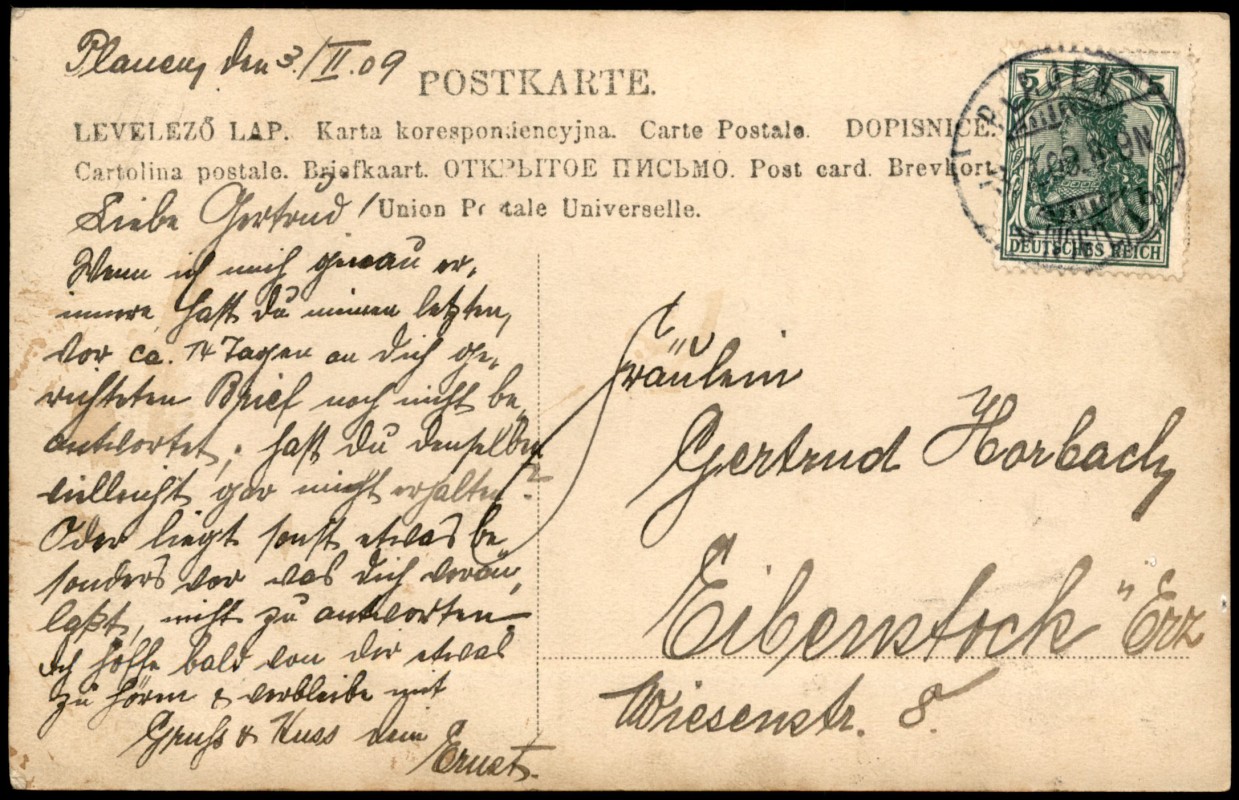 Plauen, den 3./II.09
POSTKARTE.
LEVELEZŐ LAP. Karta korespondencyjna. Carte Postale. DOPISNICE.
Cartolina postale. Briefkaart. ОТКРЫТОЕ ПИСЬМО. Post card. Brevkort
Union Postale Universelle.
Liebe Gertrud!
Wenn ich mich genau er-
innere, hast du meinen letzten,
vor ca. 14 Tagen an dich ge-
richteten Brief noch nicht be-
antwortet; hast du denselben
vielleicht gar nicht erhalten?
Oder liegt sonst etwas be-
sonders vor was dich veran-
laßt, nicht zu antworten.
Ich hoffe bald von dir etwas
zu hören & verbleibe mit
Gruss & Kuss dein
Ernst.
5 5
DEUTSCHES REICH
Fräulein
Gertrud Horbach
Eibenstock "Erz
Wiesenstr. 8.